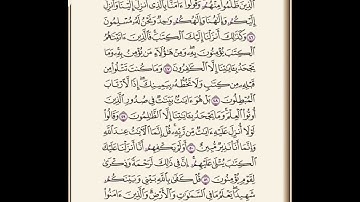 ٱلَّذِينَ ظَلَمُوا۟ مِنْهُمْ وَقُولُوٓا۟ ءَامَنَّا بِٱلَّذِىٓ أُنزِلَ إِلَيْنَا وَأُنزِلَ
إِلَيْكُمْ وَإِلَٰهُنَا وَإِلَٰهُكُمْ وَٰحِدٌ وَنَحْنُ لَهُۥ مُسْلِمُونَ
٤٦ وَكَذَٰلِكَ أَنزَلْنَآ إِلَيْكَ ٱلْكِتَٰبَ فَٱلَّذِينَ ءَاتَيْنَٰهُمُ
ٱلْكِتَٰبَ يُؤْمِنُونَ بِهِۦ وَمِنْ هَٰٓؤُلَآءِ مَن يُؤْمِنُ بِهِۦ وَمَا
يَجْحَدُ بِـَٔايَٰتِنَآ إِلَّا ٱلْكَٰفِرُونَ ٤٧ وَمَا كُنتَ تَتْلُوا۟ مِن
قَبْلِهِۦ مِن كِتَٰبٍ وَلَا تَخُطُّهُۥ بِيَمِينِكَ إِذًا لَّٱرْتَابَ
ٱلْمُبْطِلُونَ ٤٨ بَلْ هُوَ ءَايَٰتٌۢ بَيِّنَٰتٌ فِى صُدُورِ ٱلَّذِينَ
أُوتُوا۟ ٱلْعِلْمَ وَمَا يَجْحَدُ بِـَٔايَٰتِنَآ إِلَّا ٱلظَّٰلِمُونَ ٤٩ وَقَالُوا۟
لَوْلَآ أُنزِلَ عَلَيْهِ ءَايَٰتٌ مِّن رَّبِّهِۦ قُلْ إِنَّمَا ٱلْـَٔايَٰتُ عِندَ ٱللَّهِ
وَإِنَّمَآ أَنَا۠ نَذِيرٌ مُّبِينٌ ٥٠ أَوَلَمْ يَكْفِهِمْ أَنَّآ أَنزَلْنَا عَلَيْكَ
ٱلْكِتَٰبَ يُتْلَىٰ عَلَيْهِمْ إِنَّ فِى ذَٰلِكَ لَرَحْمَةً وَذِكْرَىٰ
لِقَوْمٍ يُؤْمِنُونَ ٥١ قُلْ كَفَىٰ بِٱللَّهِ بَيْنِى وَبَيْنَكُمْ
شَهِيدًا يَعْلَمُ مَا فِى ٱلسَّمَٰوَٰتِ وَٱلْأَرْضِ وَٱلَّذِينَ ءَامَنُوا۟